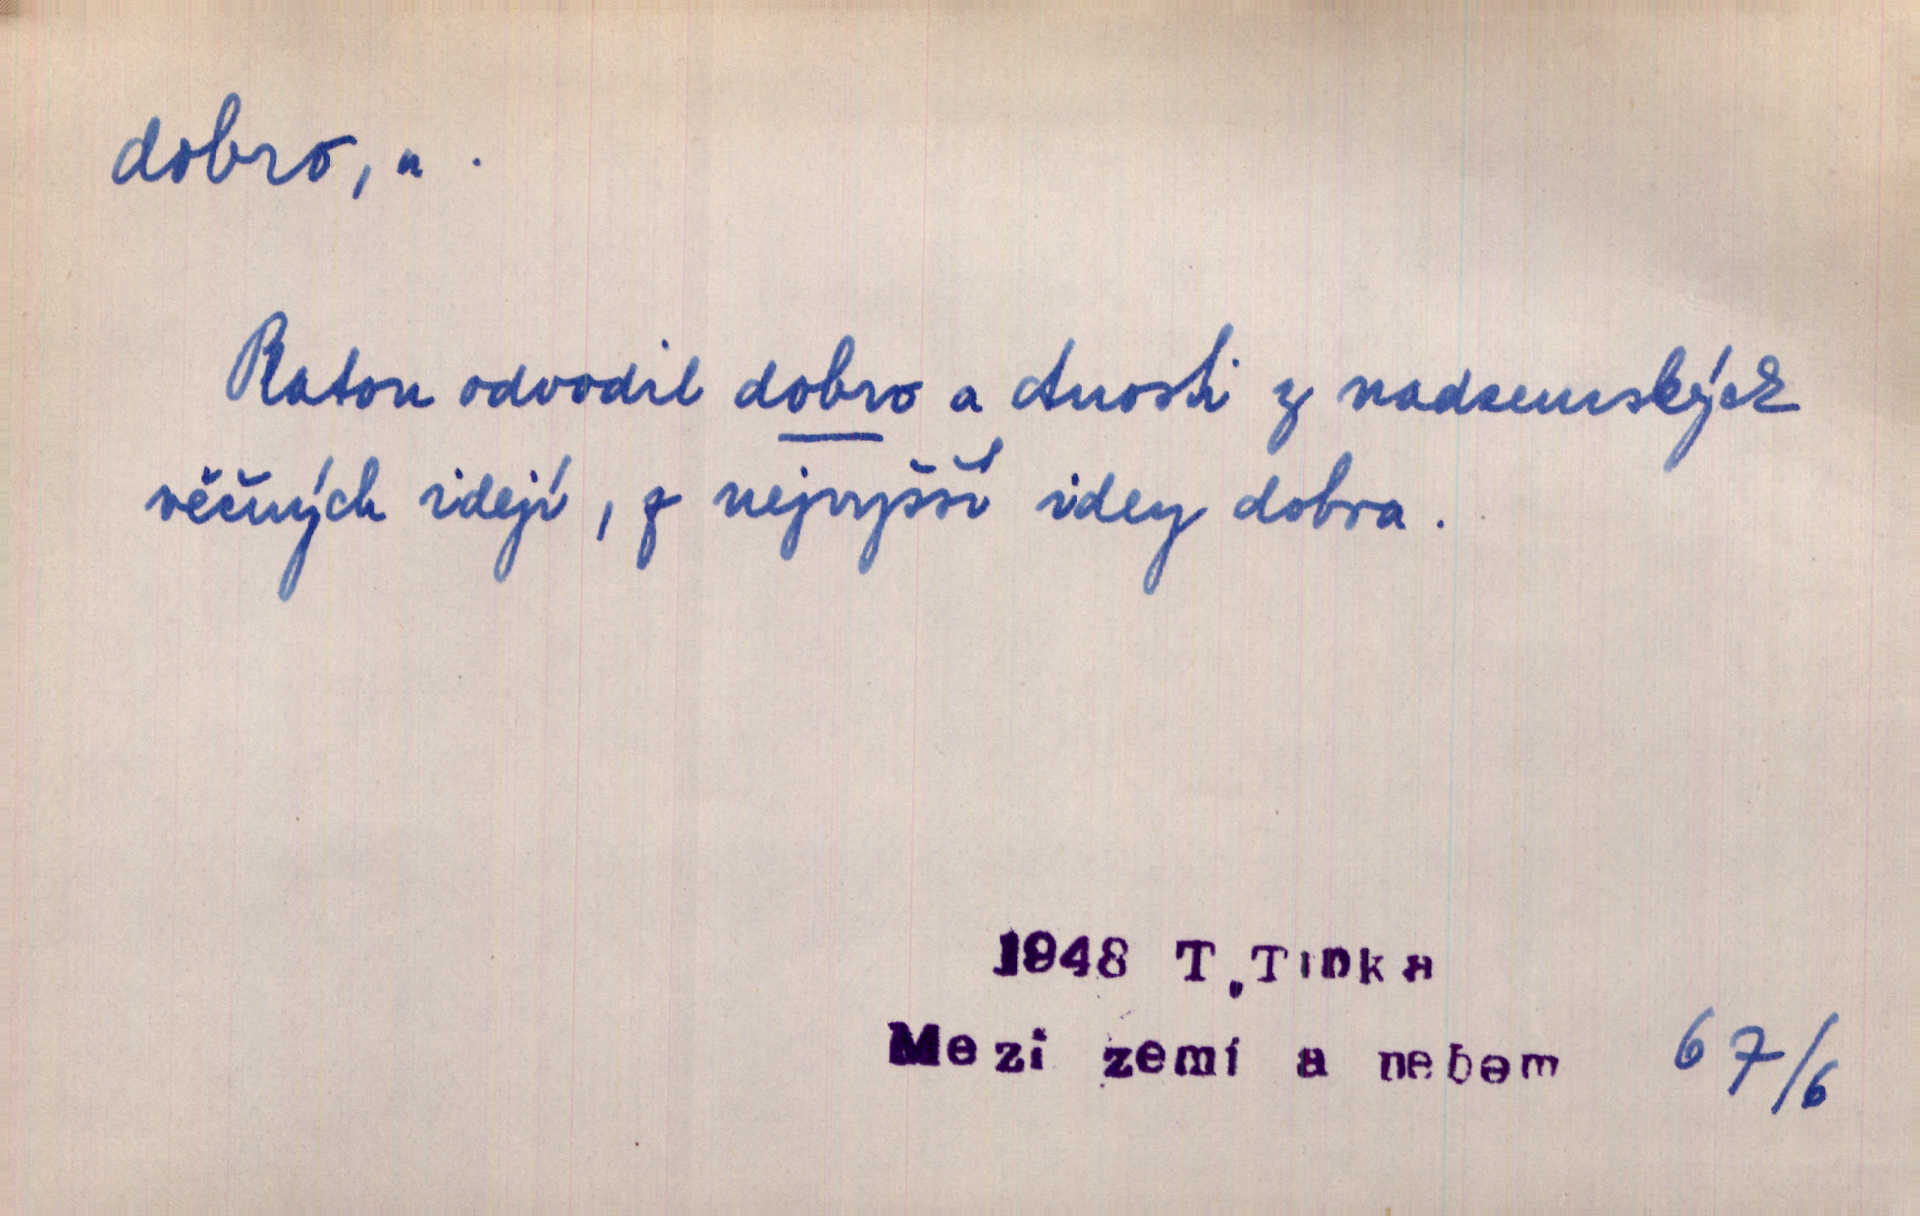 dobro, n.
Platon odvodil dobro a ctnosti z nadzemských
věčných idejí, z nejvyšší idey dobra.
1948 T. Trnka
Mezi zemí a nebem 67/6